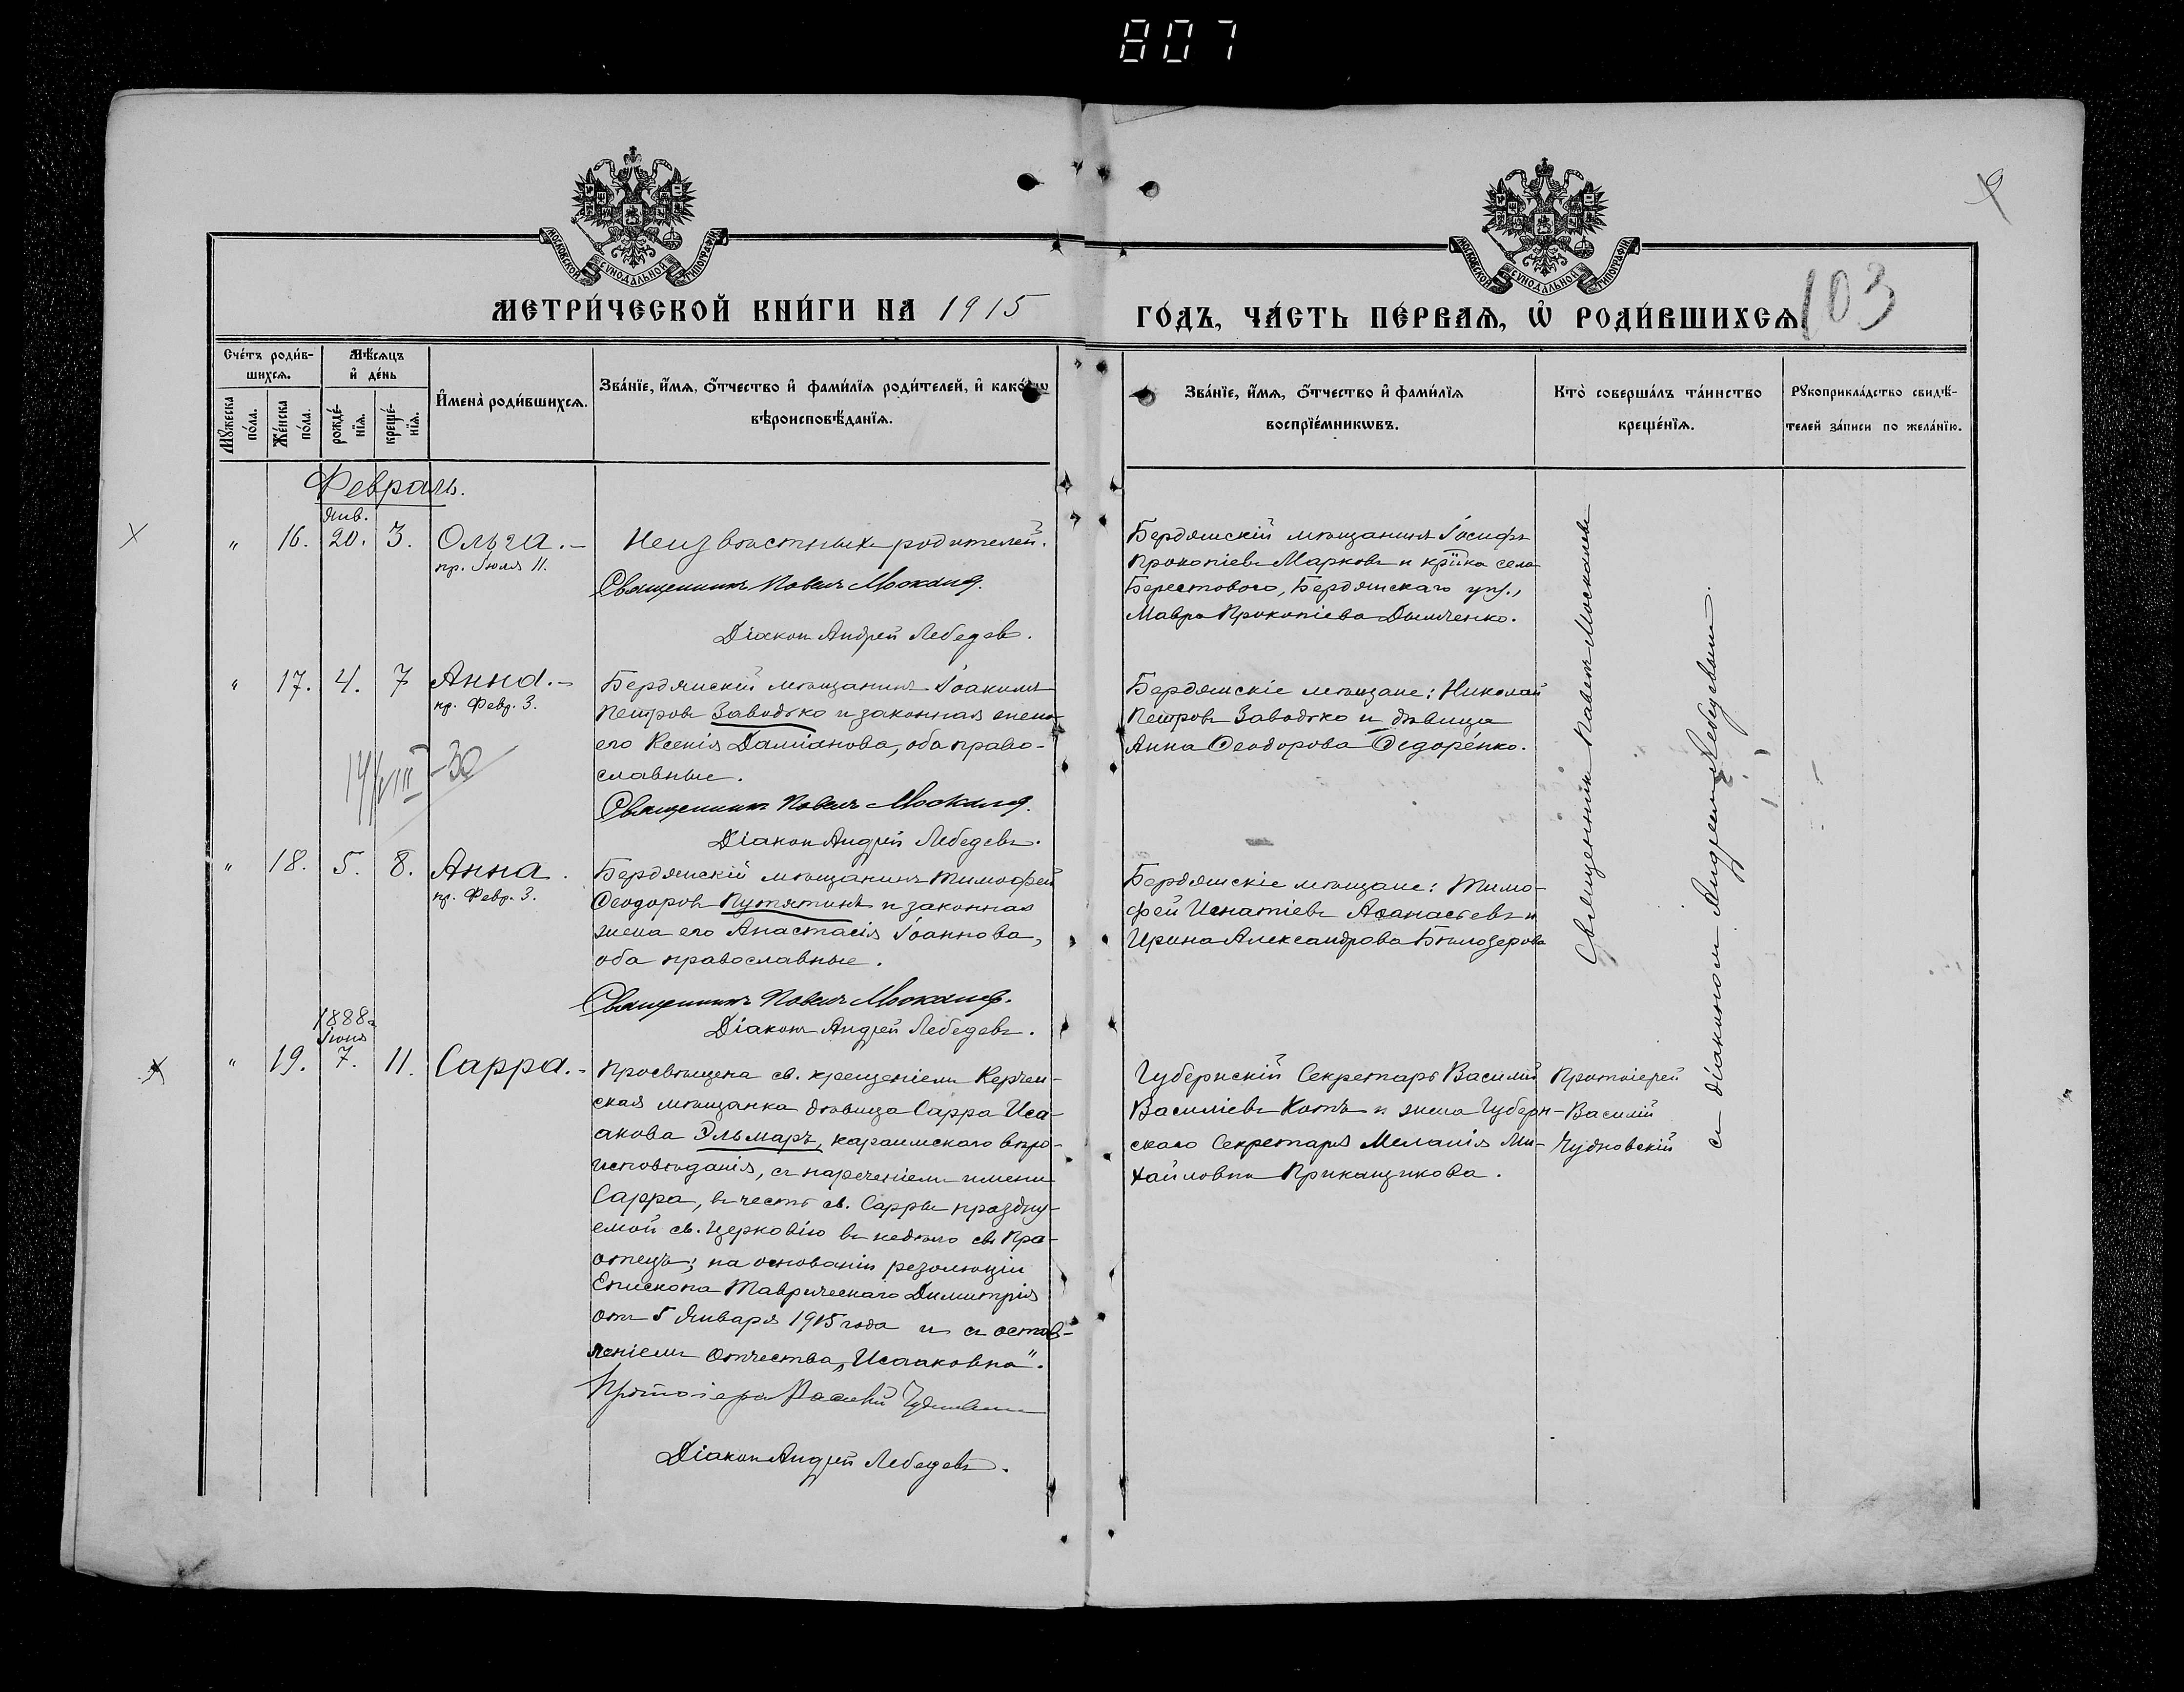 807
9
МОСКОВСКОЙ СѴНОДАЛЬНОЙ ТИПОГРАФІИ
МОСКОВСКОЙ СѴНОДАЛЬНОЙ ТИПОГРАФІИ
МЕТРИ́ЧЕСКОЙ КНИ́ГИ НА 1915
ГО́ДЪ, ЧА́СТЬ ПЕ́РВАѦ, Ѡ҆ РОДИ́ВШИХСѦ
103
Сче́тъ роди́в-
шихсѧ.
Мѣ́сѧцъ
и҆ де́нь
Мꙋ́жеска
по́ла.
Же́нска
по́ла.
рожде́-
нїѧ.
креще́-
нїѧ.
И҆мена̀ роди́вшихсѧ.
Зва́нїе, и҆́мѧ, ѻ҆́тчество и҆ фами́лїѧ роди́телей, и҆ како́гѡ
вѣроисповѣ́данїѧ.
Зва́нїе, и҆́мѧ, ѻ҆́тчество и҆ фами́лїѧ
воспрїе́мникѡвъ.
Кто̀ соверша́лъ та́инство
креще́нїѧ.
Рꙋкоприкла́дство свидѣ́-
телей за́писи по жела́нїю.
Февраль.
Янв.
" 16. 20. 3. Ольга.-
пр. Іюля 11.
Неизвѣстныхъ родителей.
Священникъ Павелъ Москалевъ.
Діакон Андрей Лебедевъ.
Бердянскій мѣщанинъ Іосифъ
Прокопіевъ Марковъ и кр҃нка села
Берестового, Бердянскаго у.,
Мавра Прокопіева Дымченко.
" 17. 4. 7 Анна.-
пр. Февр. 3.
14/VIII-30
Бердянскій мѣщанинъ Іоакимъ
Петровъ Заводько и законная жена
его Ксенія Даміанова, оба право-
славные.
Священникъ Павелъ Москалевъ.
Діакон Андрей Лебедевъ.
Бердянскіе мѣщане: Николай
Петровъ Заводько и дѣвица
Анна Ѳеодорова Ѳедоренко.
" 18. 5. 8. Анна.
пр. Февр. 3.
Бердянскій мѣщанинъ Тимофей
Ѳеодоровъ Путятинъ и законная
жена его Анастасія Іоаннова,
оба православные.
Священникъ Павелъ Москалевъ.
Діаконъ Андрей Лебедевъ.
Бердянскіе мѣщане: Тимо-
фей Игнатіевъ Аѳанасьевъ и
Ирина Александрова Бѣлозерова
Священникъ Павелъ Москалевъ
съ діакономъ Андреемъ Лебедевымъ.
1888г.
Іюня
" 19. 7. 11. Сарра.-
Просвѣщена св. крещеніемъ Керчен-
ская мѣщанка дѣвица Сарра Иса-
акова Эльмаръ, караимскаго вѣро-
исповѣданія, съ нареченіемъ имени
Сарра, въ честь св. Сарры праздну-
емой св. Церковію въ недѣлю св. Пра-
отецъ; на основаніи резолюціи
Епископа Таврическаго Димитрія
отъ 5 Января 1915 года и съ остав-
леніемъ отчества „Исааковна".
Протоіерей Василій Чудновскій
Діакон Андрей Лебедевъ.
Губернскій Секретарь Василій
Василіевъ Котъ и жена Губерн-
скаго Секретаря Меланія Ми-
хайловна Приканщикова.
Протоіерей
Василій
Чудновскій